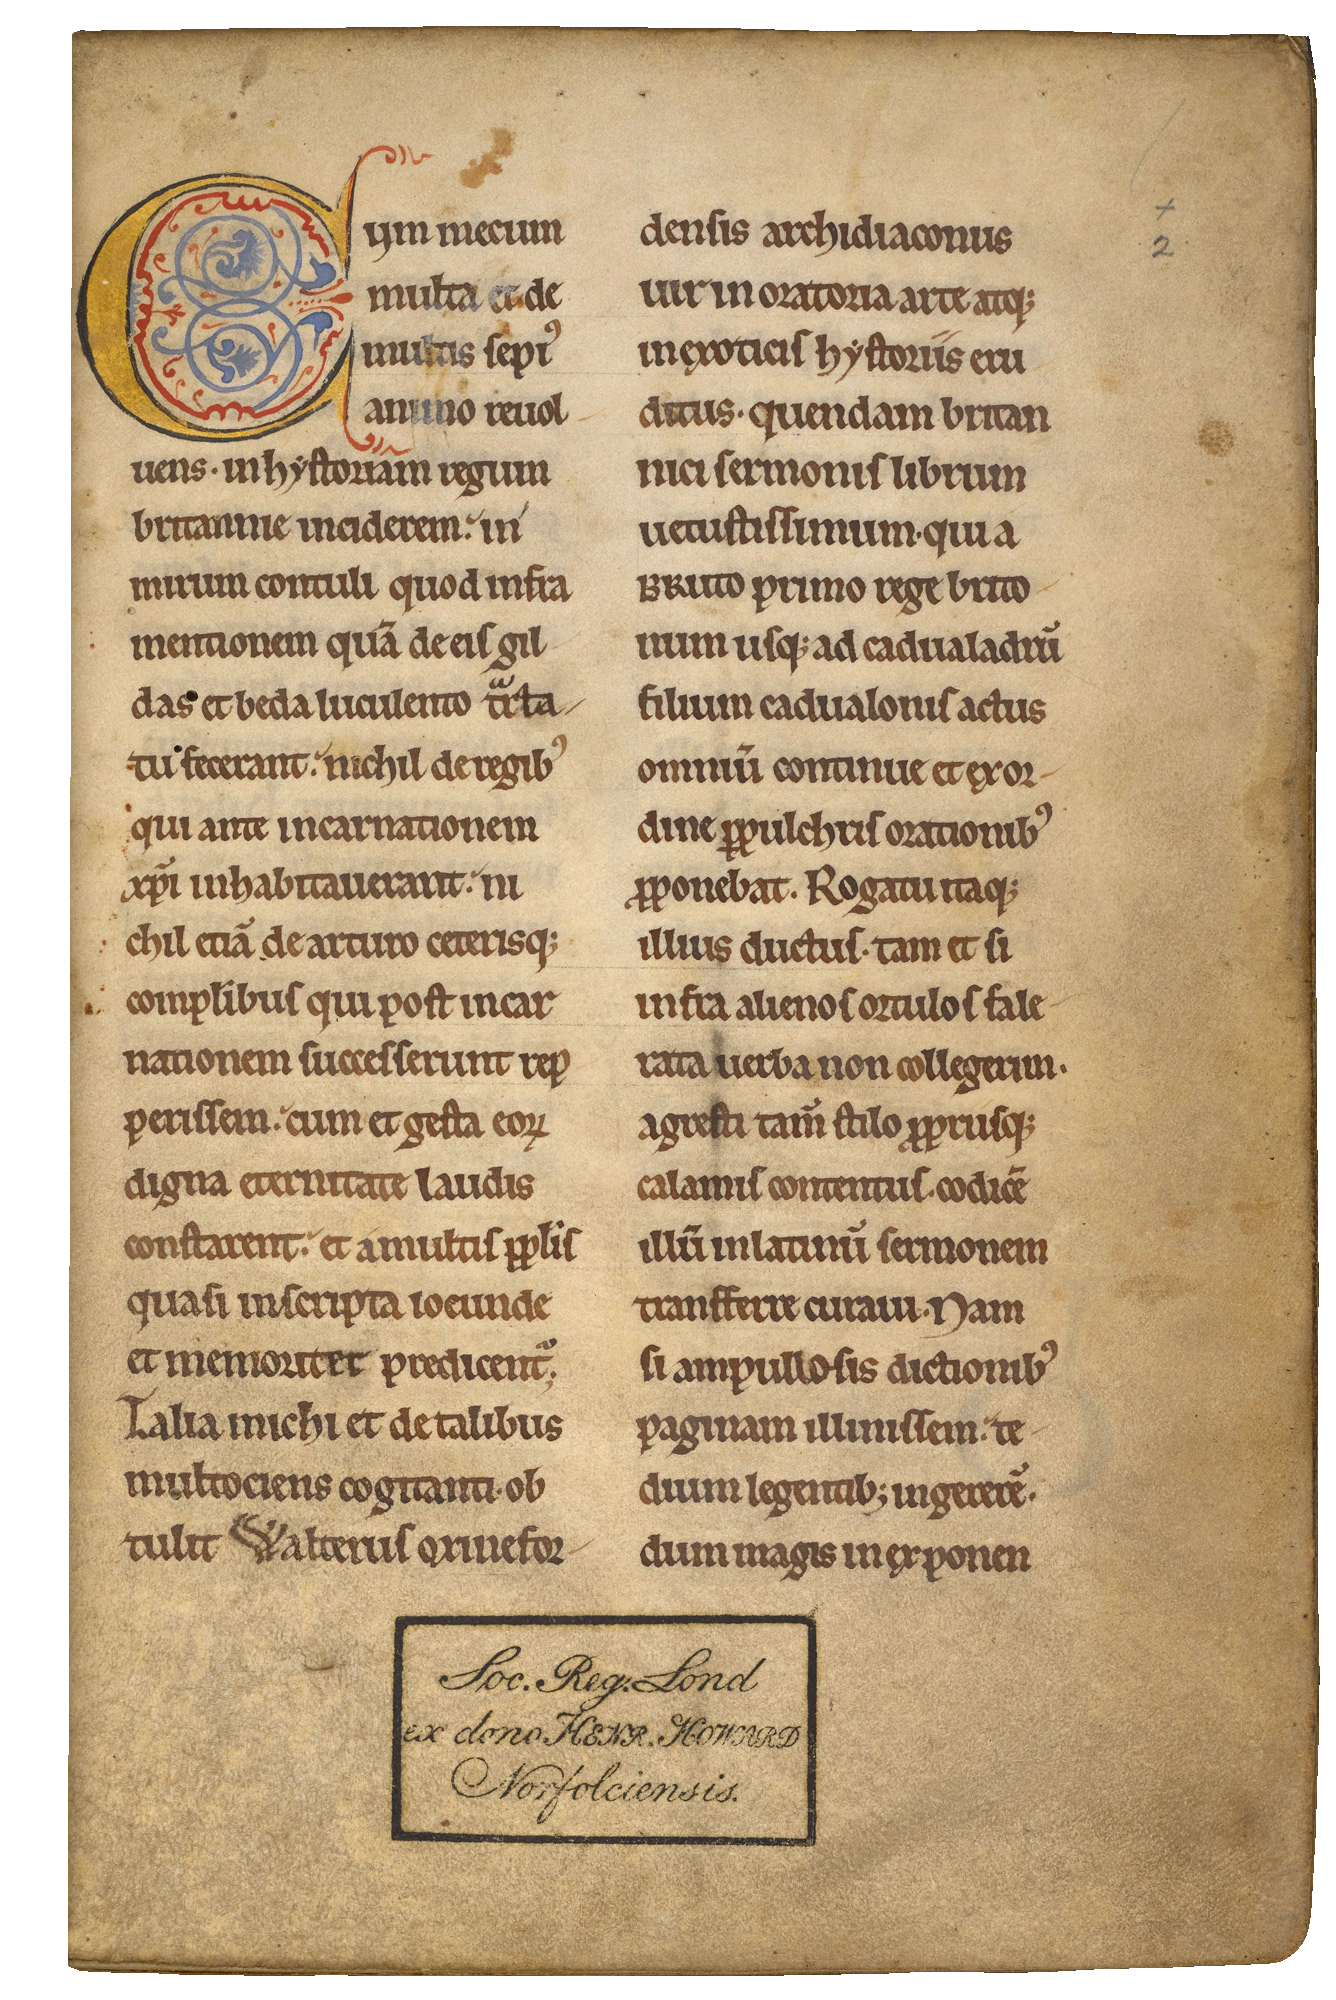 Cum mecum
multa et de
multis sepi⁹
animo reuol
uens· in hystoriam regum
britannie inciderem. in
mirum contuli quod infra
mentionem quā de eis gil
das et beda luculento tͣcta
tu fecerant. nichil de regib⁹
qui ante incarnationem
xp̄i inhabitauerant. ni
chil etiā de arturo ceterisq;
complibus qui post incar
nationem successerunt rep
perissem. cum et gesta eoꝝ
digna eternitate laudis
constarent. et a multis pplis
quasi inscripta iocunde
et memoriter predicent᷑;
Talia michi et de talibus
multociens cogitanti· ob
tulit Walterus oxinefor
densis archidiaconus
uir in oratoria arte atq;
in exoticis hystoriis eru
ditus· quendam britan
nici sermonis librum
uetustissimum· qui a
BRuto primo rege brito
num usq; ad cadualadrū
filium cadualonis actus
omniū continue et ex or
dine ꝑpulchris orationib⁹
ꝓponebat. Rogatu itaq;
illius ductus· tam et si
infra alienos ortulos fale
rata uerba non collegerim·
agresti tam̄ stilo ꝓpriisq;
calamis contentus· codicē
illū in latinū sermonem
transferre curaui· Nam
si ampullosis dictionib⁹
paginam illinissem. te
dium legentib; ingererē·
dum magis in exponen
Soc. Reg. Lond
ex dono HENR. HOWARD
Norfolciensis.
+
2